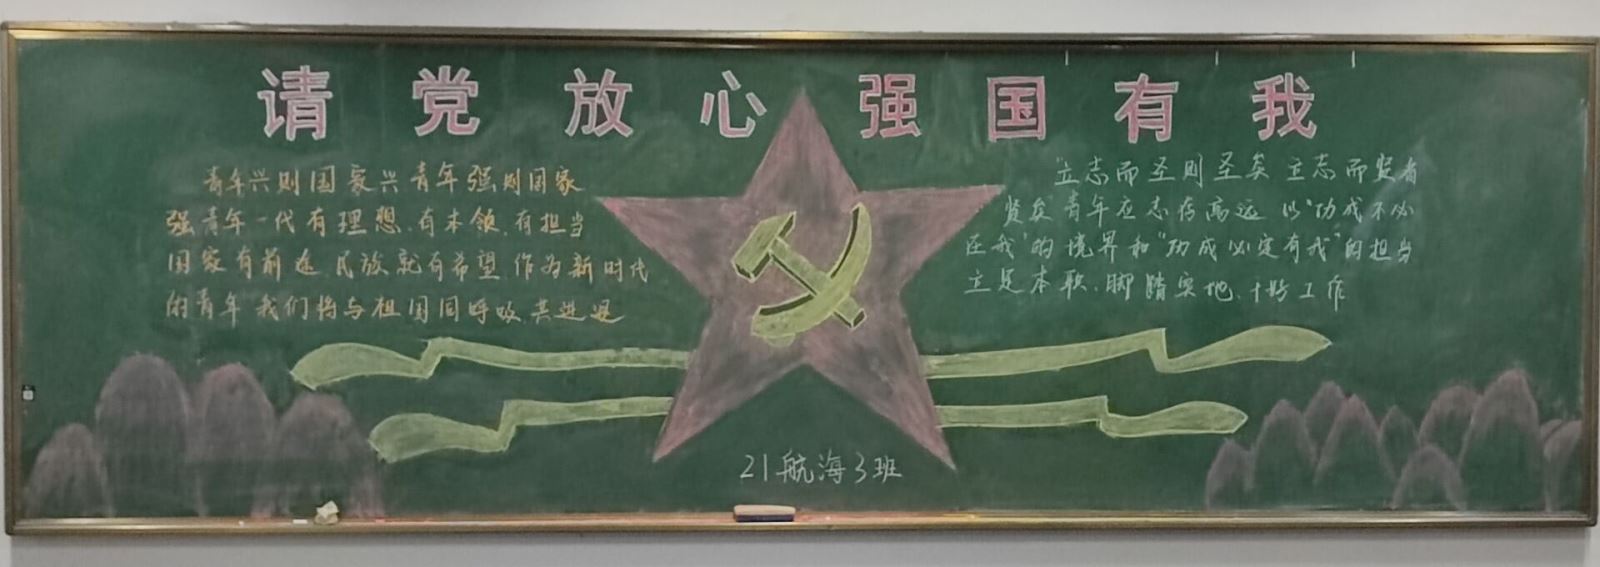 请党放心强国有我
青年兴则国家兴青年强则国家
强青年一代有理想、有本领、有担当
国家有前途民族就有希望作为新时代
的青年我们将与祖国同呼吸、共进退
“立志而圣则圣矣立志而贤者
贤矣青年应志存高远以“功成不必
在我”的境界和“功成必定有我”的担当
立足本职、脚踏实地、干好工作
21航海3班